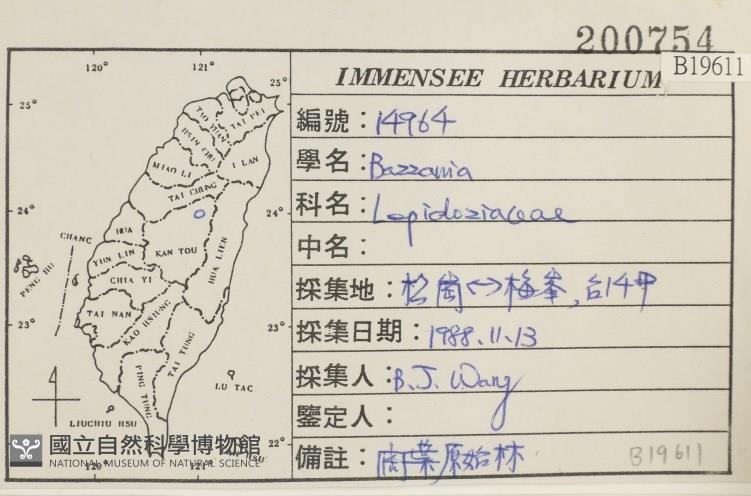 200754
B19611
IMMENSEE HERBARIUM
編號：14964
學名：Bazzania
科名：Lepidoziaceae
中名：
採集地：松崗↔梅峯,台14甲
採集日期：1988.11.13
採集人：B.J. Wang
鑒定人：
備註：闊葉原始林
B19611
120° 121°
25° 25°
TAO YUAN
TAI PEI
HSIN CHU
I LAN
MIAO LI
TAI CHUNG
24° 24°
CHANG
HUA
YUN LIN
KAN TOU
HUA LIEN
PENG HU
CHIA YI
TAI NAN
KAO HSIUNG
23° 23°
TAI TUNG
PING TUNG
LU TAC
LIUCHIU HSU
22°
120° 121°
國立自然科學博物館
NATIONAL MUSEUM OF NATURAL SCIENCE